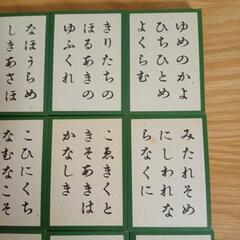 ゆめのかよ
ひちひとめ
よくらむ
きりたちの
ほるあきの
ゆふくれ
なほうらめ
しきあさほ
みたれそめ
にしわれな
らなくに
こゑきくと
きそあきは
かなしき
こひにくち
なむなこそ